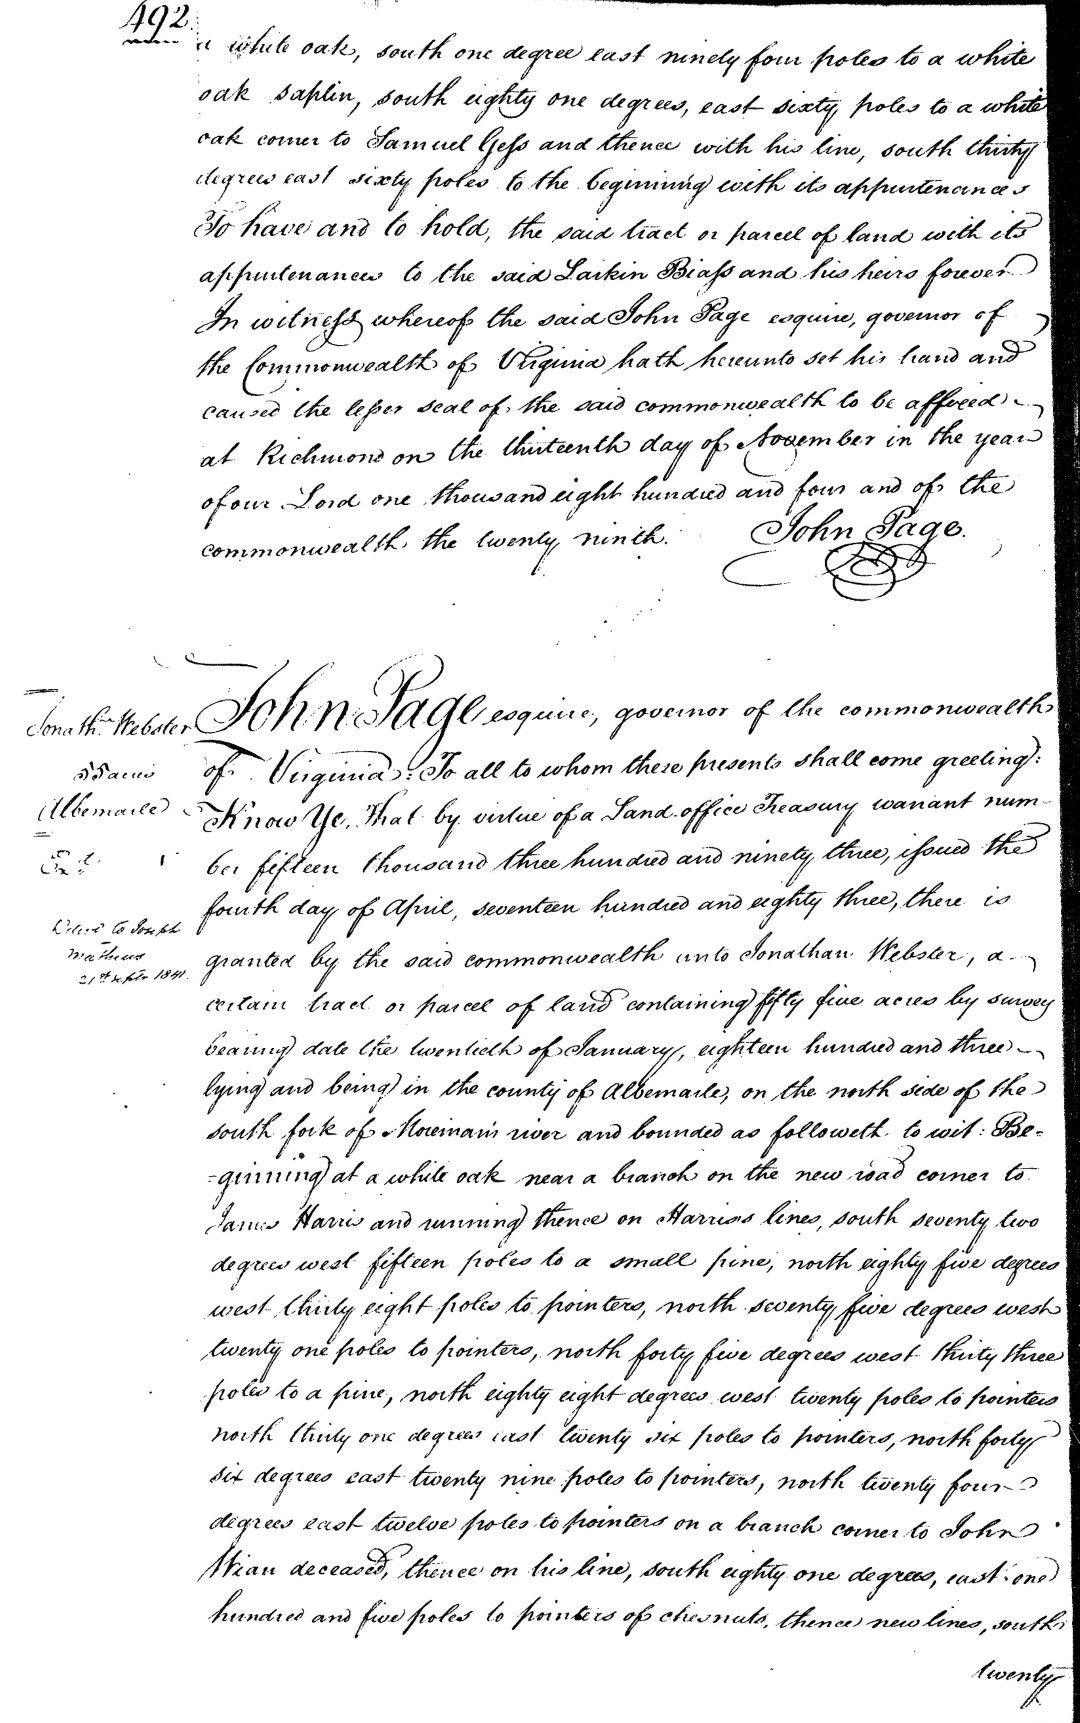 492
a white oak, south one degree east ninety four poles to a white
oak saplin, south eighty one degrees, east sixty poles to a white
oak corner to Samuel Gess and thence with his line, south thirty
degrees east sixty poles to the beginning with its appurtenances
To have and to hold, the said tract or parcel of land with its
appurtenances to the said Larkin Biass and his heirs forever
In witness whereof the said John Page esquire, governor of
the Commonwealth of Virginia hath hereunto set his hand and
caused the lesser seal of the said commonwealth to be affixed
at Richmond on the thirteenth day of November in the year
of our Lord one thousand eight hundred and four and of the
commonwealth the twenty ninth.
John Page.
Jonathn. Webster
55 acres
Albemarle
Exd. 1
Deliv'd to Joseph
Mathews
21st Septr 1841.
John Page esquire, governor of the commonwealth
of Virginia: To all to whom these presents shall come greeting:
Know Ye, that by virtue of a Land office Treasury warrant num-
ber fifteen thousand three hundred and ninety three, issued the
fourth day of April, seventeen hundred and eighty three, there is
granted by the said commonwealth unto Jonathan Webster, a
certain tract or parcel of land containing fifty five acres by survey
bearing date the twentieth of January, eighteen hundred and three
lying and being in the county of Albemarle, on the north side of the
south fork of Moremans river and bounded as followeth to wit: Be-
=ginning at a white oak near a branch on the new road corner to
James Harris and running thence on Harris's lines, south seventy two
degrees west fifteen poles to a small pine, north eighty five degrees
west thirty eight poles to pointers, north seventy five degrees west
twenty one poles to pointers, north forty five degrees west thirty three
poles to a pine, north eighty eight degrees west twenty poles to pointers
north thirty one degrees east twenty six poles to pointers, north forty
six degrees east twenty nine poles to pointers, north twenty four
degrees east twelve poles to pointers on a branch corner to John
deceased, thence on his line, south eighty one degrees, east one
hundred and five poles to pointers of chesnuts, thence new lines, south
twenty